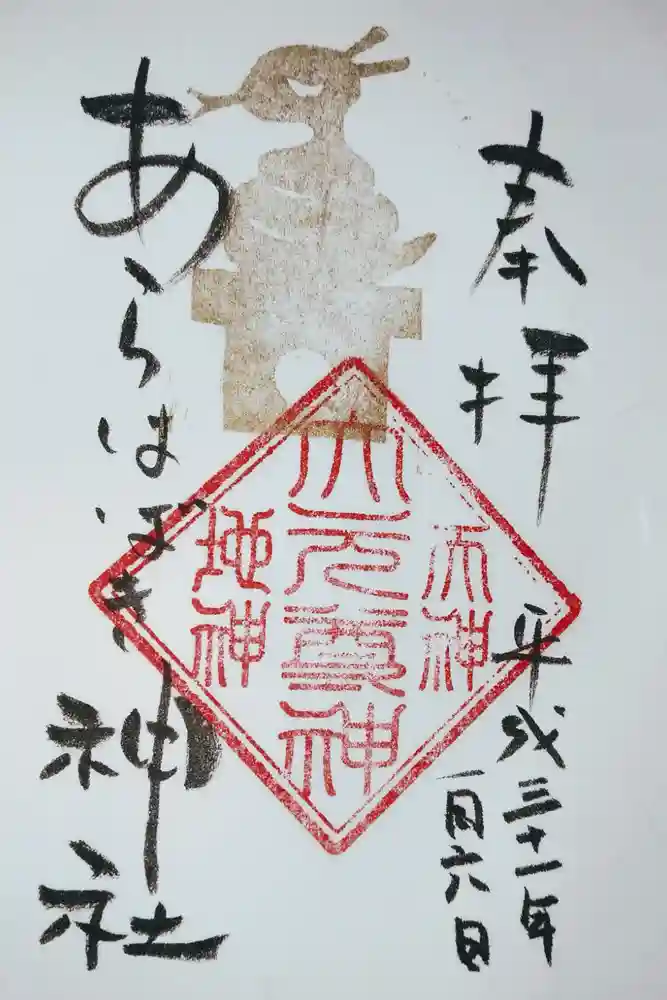 奉拝
平成三十一年
一月六日
天神
大元尊神
地神
あらはばき神社